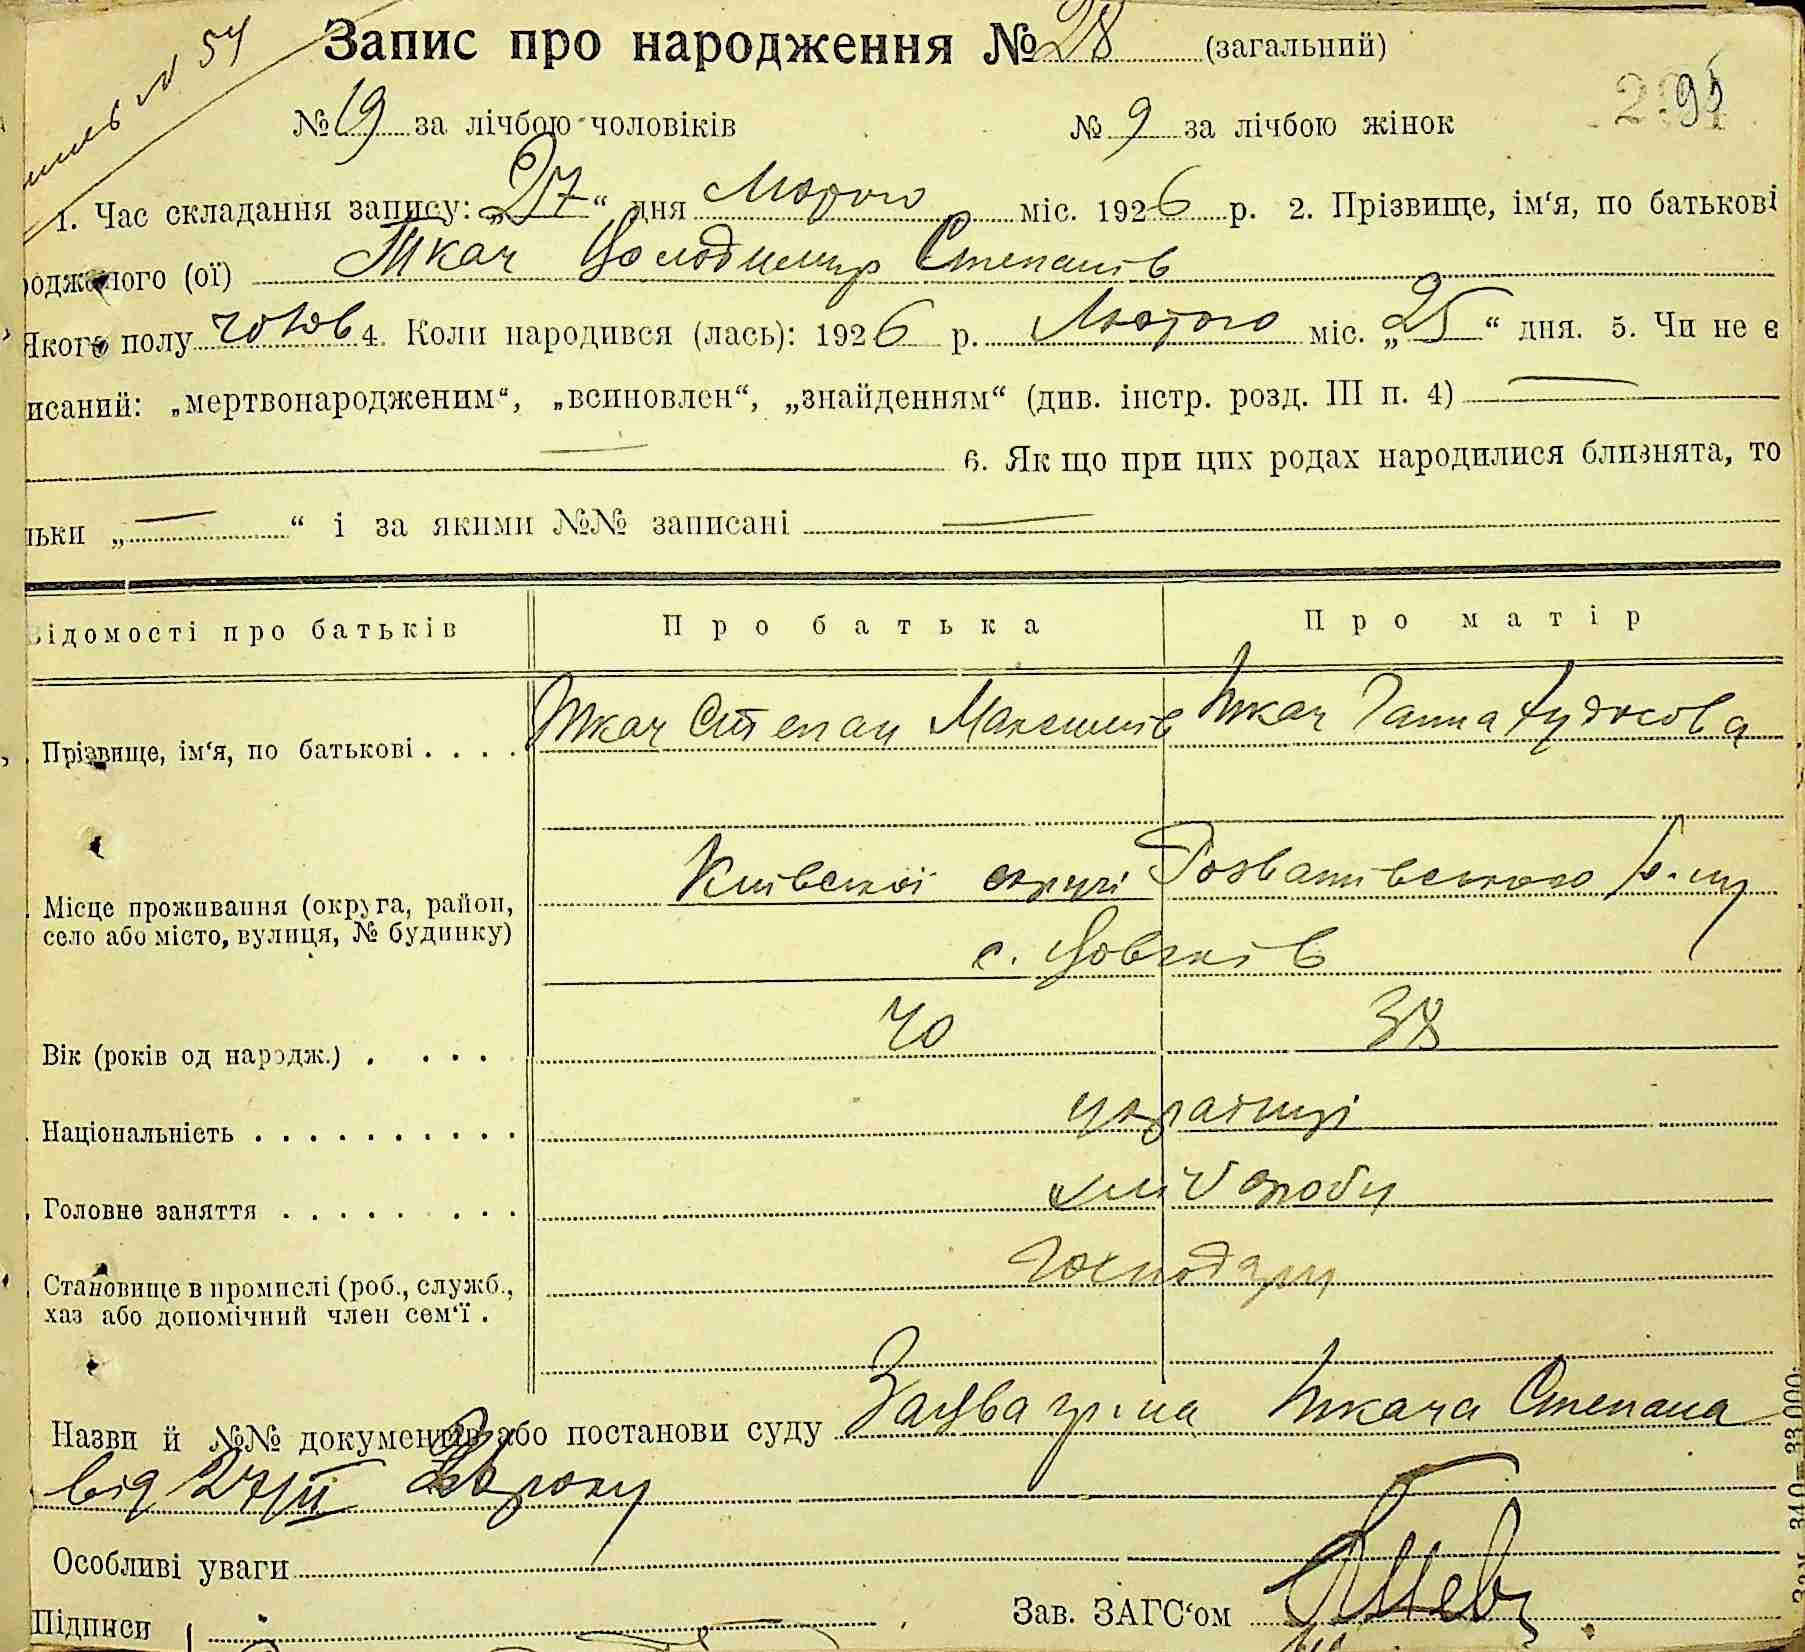 № 54
Запис про народження № 28 (загальний)
№ 19 за лічбою чоловіків № 9 за лічбою жінок
1. Час складання запису: „27“ дня Лютого міс. 1926 р. 2. Прізвище, ім‘я, по батькові
родженого (ої) Ткач Володимир Степанів
Якого полу чолов 4. Коли народився (лась): 1926 р. Лютого міс. „25“ дня. 5. Чи не є
исаний: „мертвонародженим“, „всиновлен“, „знайденням“ (див. інстр. розд. III п. 4) —
— 6. Як що при цих родах народилися близнята, то
льки „—“ і за якими №№ записані —
Відомості про батьків Про батька Про матір
Прізвище, ім‘я, по батькові . . . . Ткач Степан Максимів Ткач Ганна
Місце проживання (округа, район, Київської округи Розважівського р-ну
село або місто, вулиця, № будинку) с.
Вік (років од народж.) . . . . 40 38
Національність . . . . . . . . . . . українці
Головне заняття . . . . . . . . . хлібороби
Становище в промислі (роб., служб., Господарі
хаз або допомічний член сем‘ї .
Назви й №№ документів або постанови суду Заява гр-на Ткача Степана
від 27/II 26 року
Особливі уваги
Підписи Зав. ЗАГС‘ом
Зам. 340—33.000.